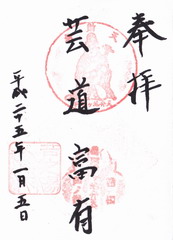 奉拝
芸道富有
平成二十五年一月五日